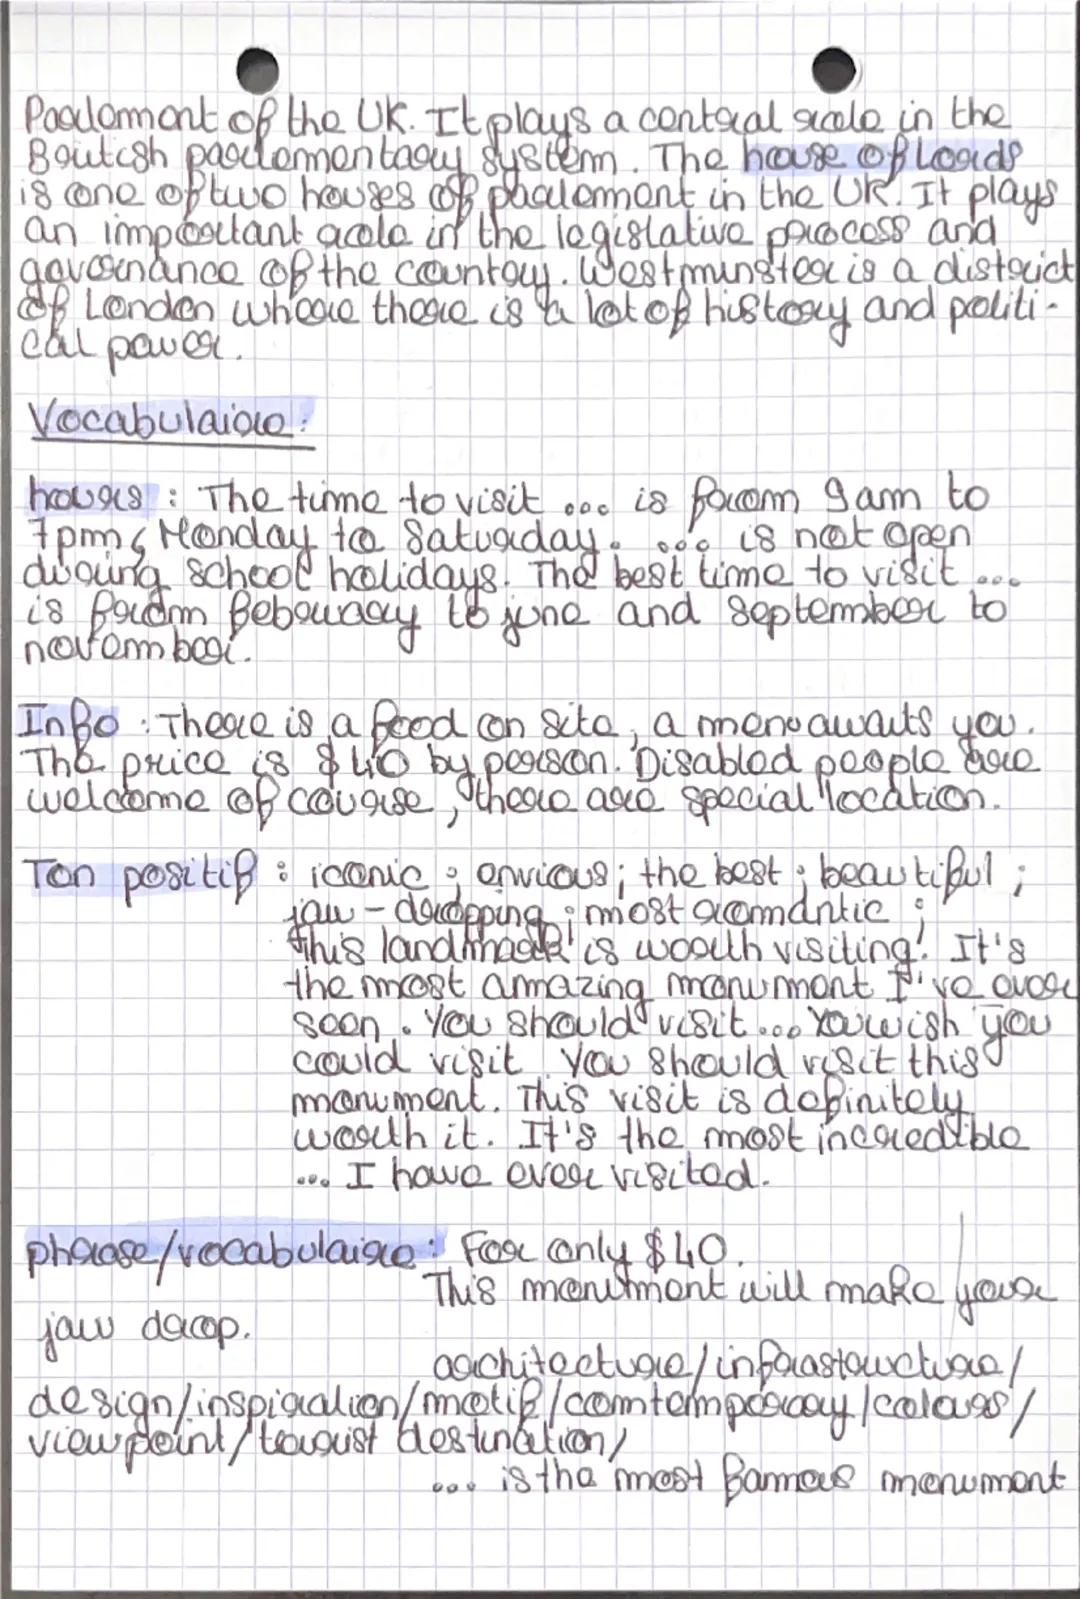 Parlement of the UK. It plays a central role in the
British parlementary system. The house of Lords
is one of two houses of parlement in the UK. It plays
an important role in the legislative process and
governance of the country. Westminster is a district
of London where there is a lot of history and politi-
cal power.
Vocabulaire:
hours : The time to visit ... is from 9am to
7pm, Monday to Saturday. ... is not open
during school holidays. The best time to visit ...
is from february to june and september to
november.
Info : There is a food on site, a menu awaits you.
The price is $40 by person. Disabled people are
welcome of course, there are special location.
Ton positif : iconic ; envious ; the best ; beautiful ;
jaw-dropping ; most romantic ;
this landmark is worth visiting! It's
the most amazing monument I've ever
seen. You should visit ... You wish you
could visit. You should visit this
monument. This visit is definitely
worth it. It's the most incredible
... I have ever visited.
phrase/vocabulaire : For only $40.
This monument will make your
jaw drop.
architecture/infrastructure/
design/inspiration/motif/comtemporary/colours/
viewpoint/tourist destination/
... is the most famous monument